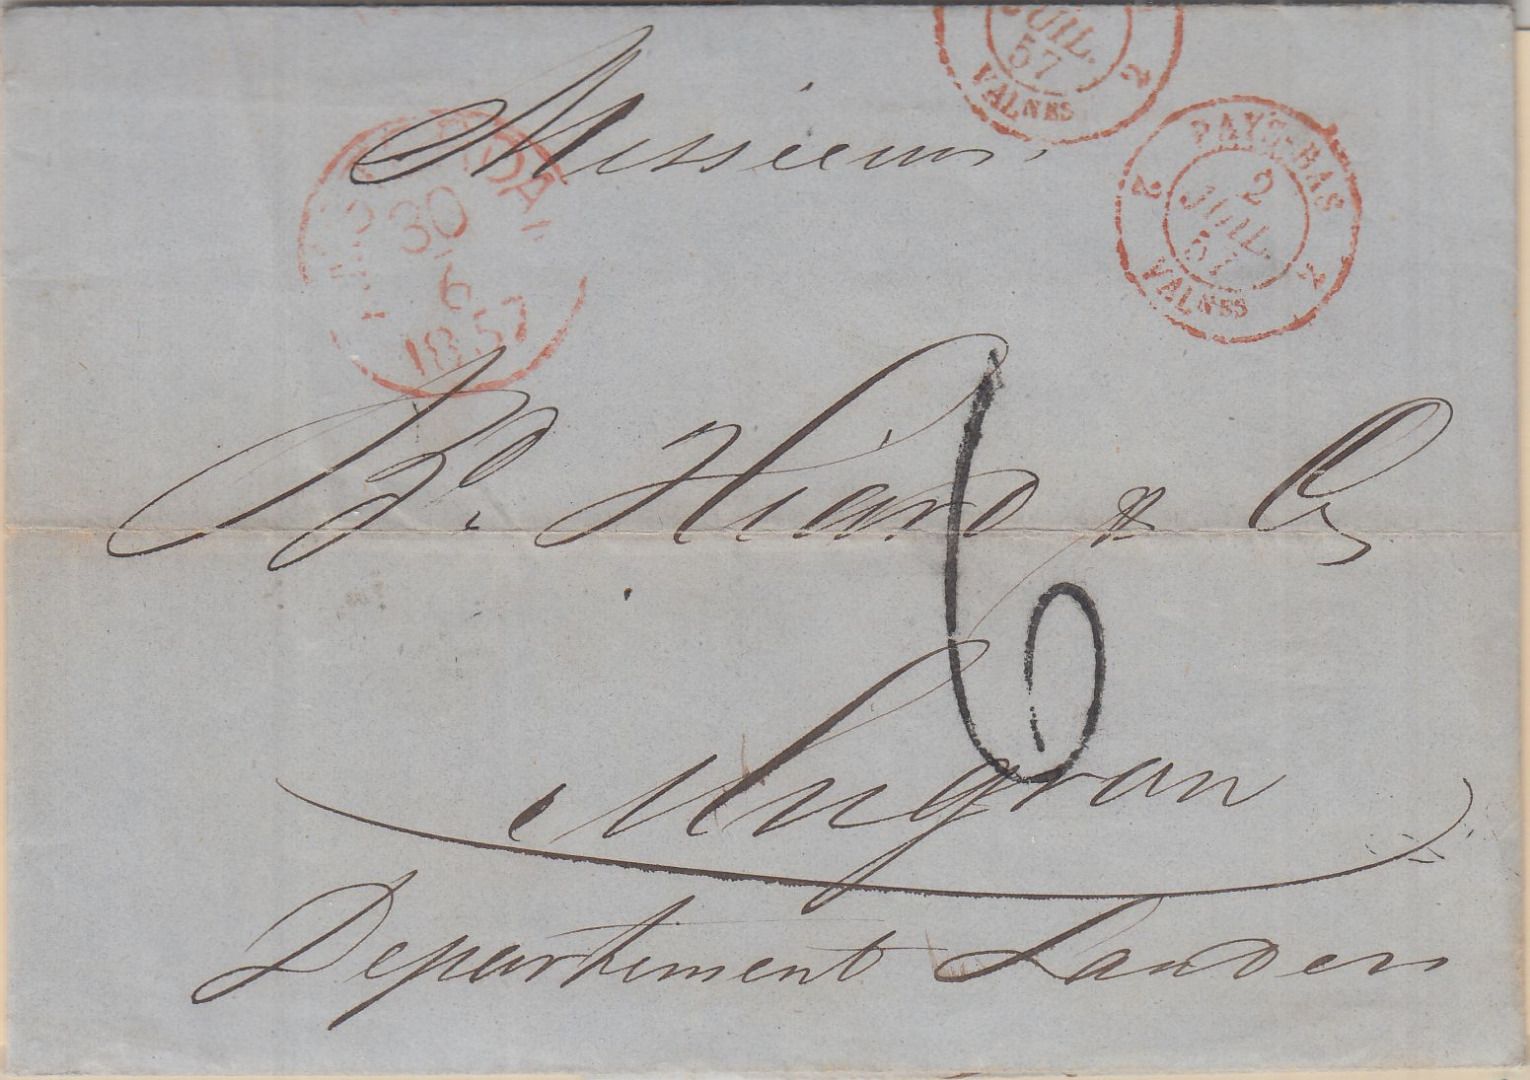 JUIL.
57
2
VALNES
Messieurs
30
6
1857
PAYS-BAS
2
2
JUIL.
57
2
VALNES
Bd. Hiard & Co
6
Mugran
Departement Landes